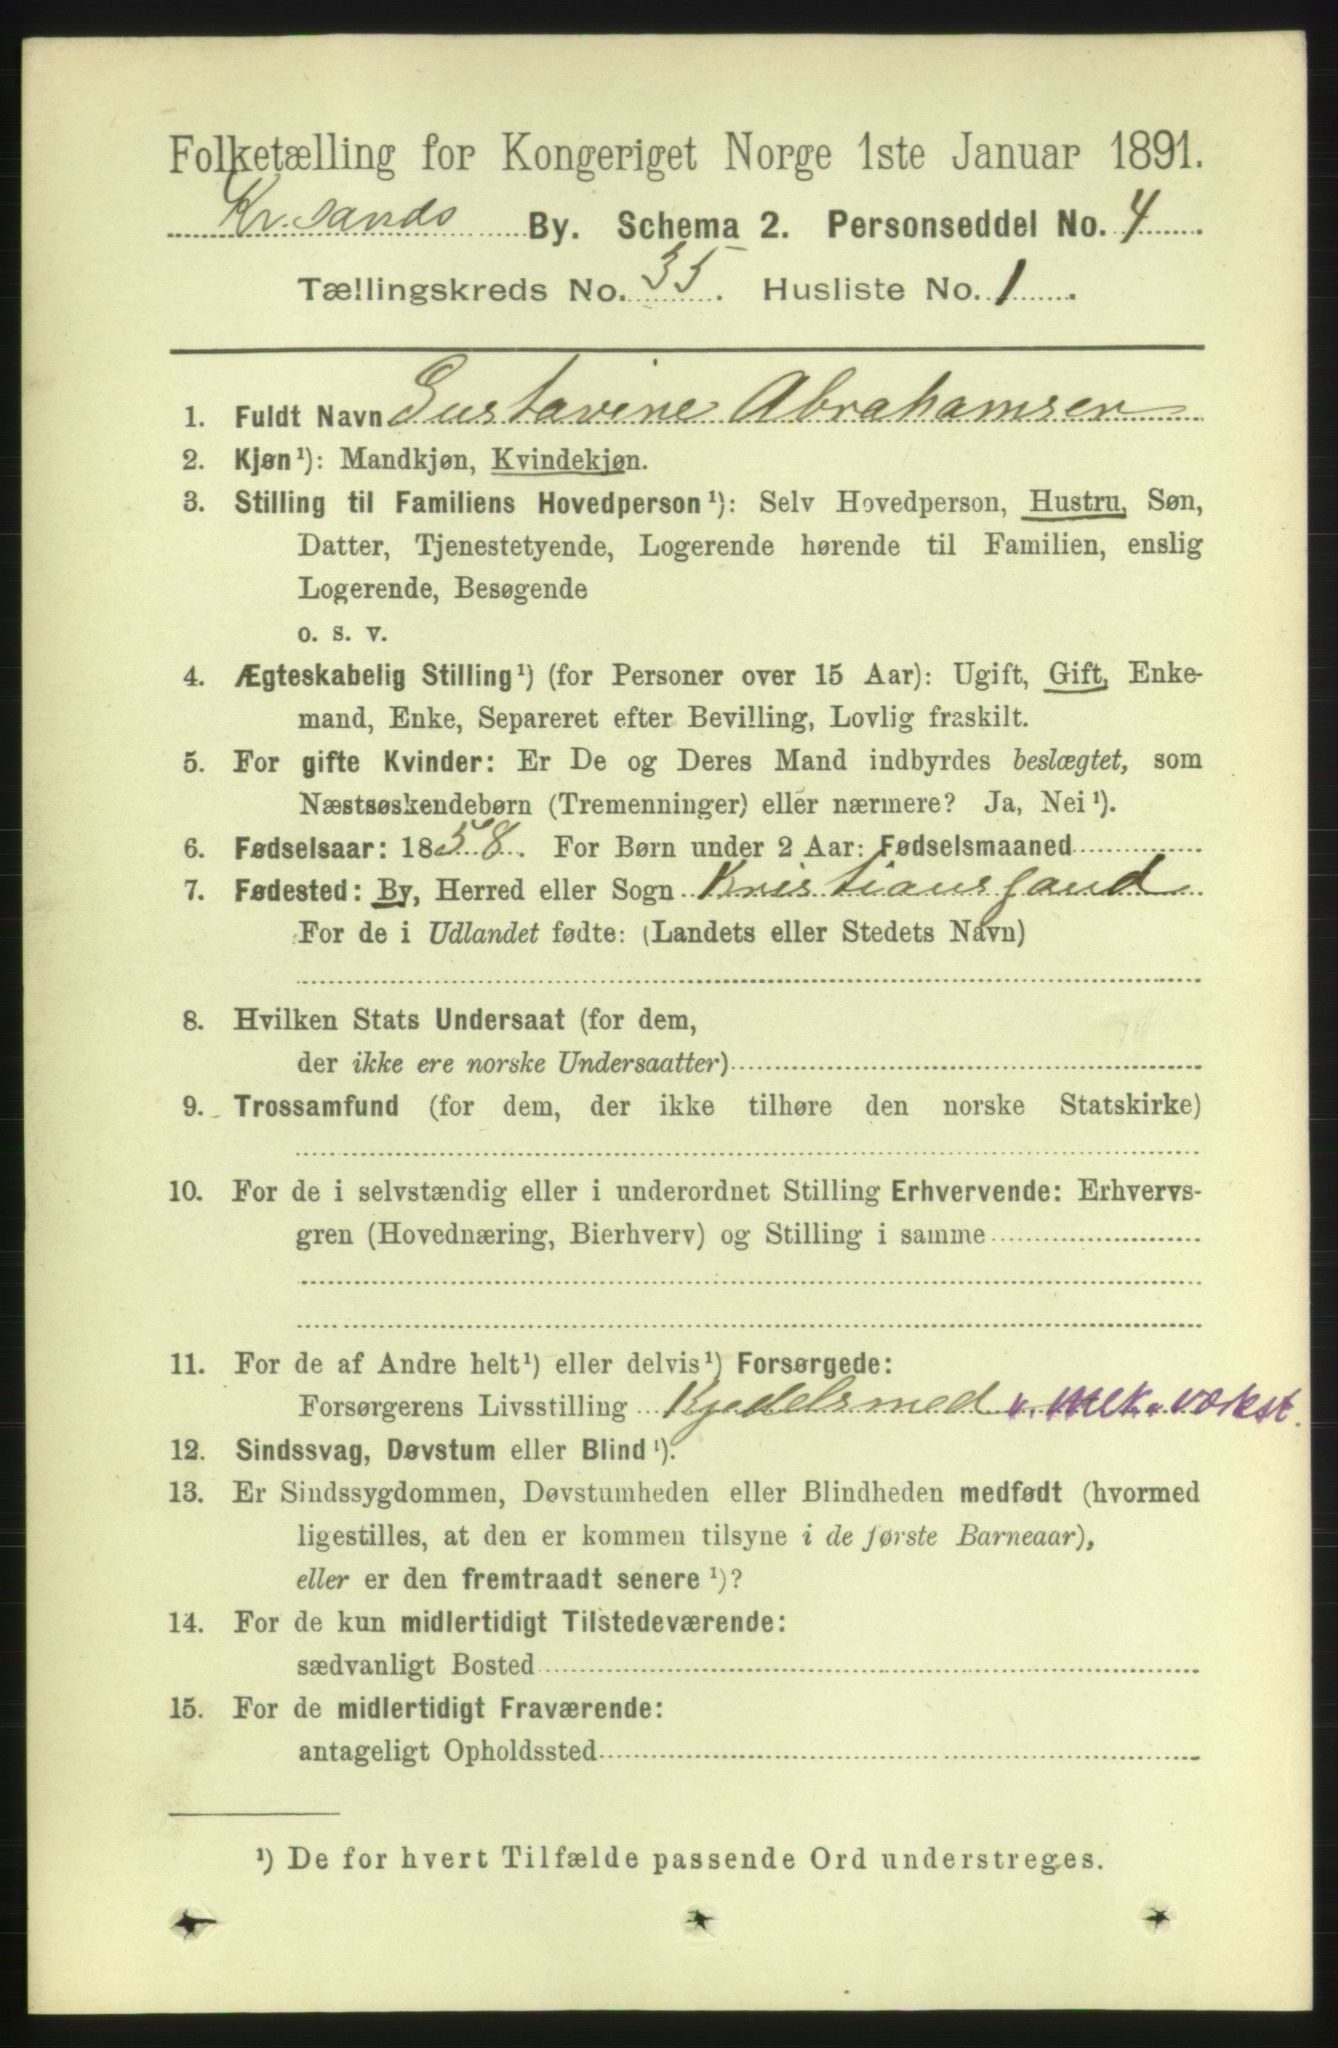 Folketælling for Kongeriget Norge 1ste Januar 1891.
Kr.sands By. Schema 2. Personseddel No. 4
Tællingskreds No. 35. Husliste No. 1.
1. Fuldt Navn Gustavine Abrahamsen
2. Kjøn¹): Mandkjøn, Kvindekjøn.
3. Stilling til Familiens Hovedperson¹): Selv Hovedperson, Hustru, Søn,
Datter, Tjenestetyende, Logerende hørende til Familien, enslig
Logerende, Besøgende
o. s. v.
4. Ægteskabelig Stilling¹) (for Personer over 15 Aar): Ugift, Gift, Enke-
mand, Enke, Separeret efter Bevilling, Lovlig fraskilt.
5. For gifte Kvinder: Er De og Deres Mand indbyrdes beslægtet, som
Næstsøskendebørn (Tremenninger) eller nærmere? Ja, Nei¹).
6. Fødselsaar: 1858. For Børn under 2 Aar: Fødselsmaaned
7. Fødested: By, Herred eller Sogn Kristianssand
For de i Udlandet fødte: (Landets eller Stedets Navn)
8. Hvilken Stats Undersaat (for dem,
der ikke ere norske Undersaatter)
9. Trossamfund (for dem, der ikke tilhøre den norske Statskirke)
10. For de i selvstændig eller i underordnet Stilling Erhvervende: Erhvervs-
gren (Hovednæring, Bierhverv) og Stilling i samme
11. For de af Andre helt¹) eller delvis¹) Forsørgede:
Forsørgerens Livsstilling Kjedelsmed v. Mek. Værkst.
12. Sindssvag, Døvstum eller Blind¹).
13. Er Sindssygdommen, Døvstumheden eller Blindheden medfødt (hvormed
ligestilles, at den er kommen tilsyne i de første Barneaar),
eller er den fremtraadt senere¹)?
14. For de kun midlertidigt Tilstedeværende:
sædvanligt Bosted
15. For de midlertidigt Fraværende:
antageligt Opholdssted
¹) De for hvert Tilfælde passende Ord understreges.